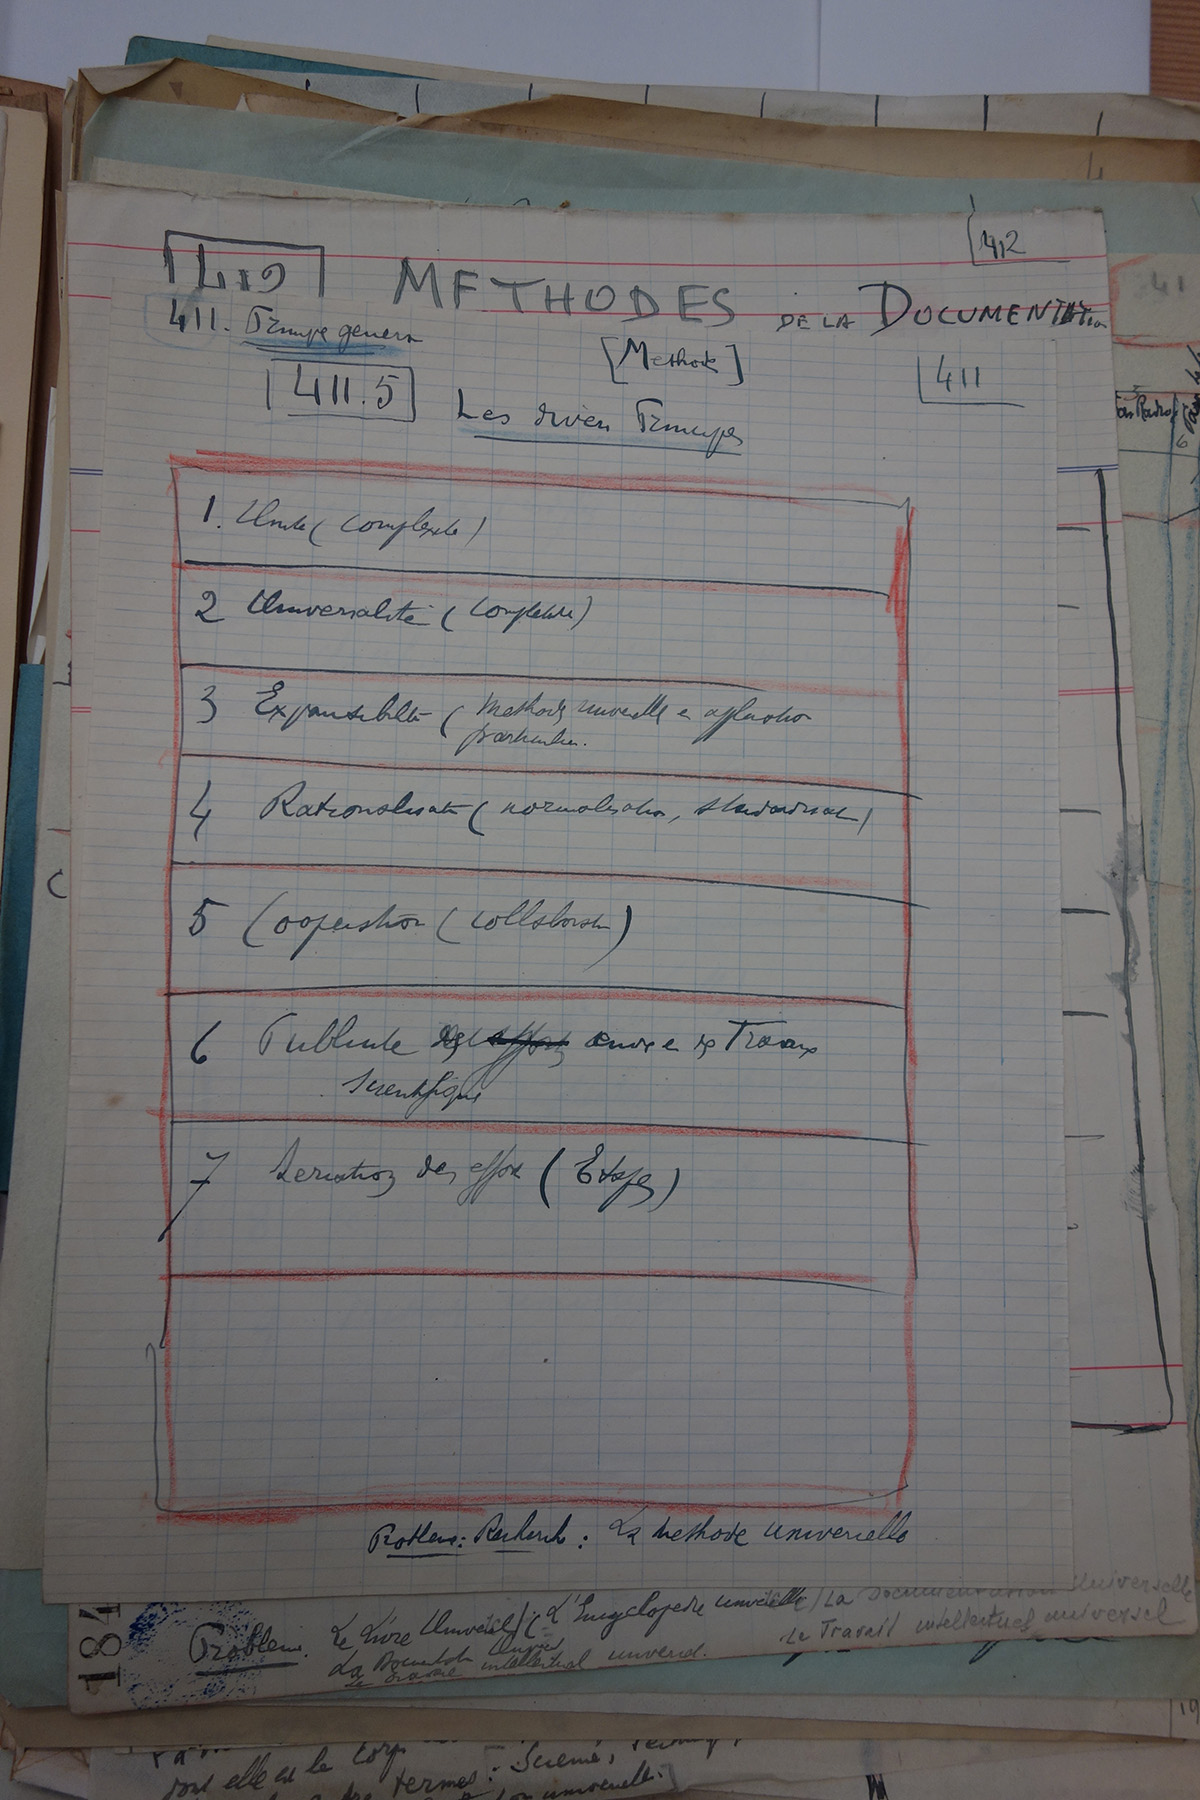 412
419 METHODES DE LA DOCUMENTATION
411. Principe general
[Methode]
411
411.5 Les divers Principes
1. Unité (Complexité)
2 Universalité (Complétude)
3 Expansibilité (Methode universelle en application
particulière.
4 Rationalisation (normalisation, standardisation)
5 Cooperation (Collaboration)
6 Publicité des Travaux
Scientifiques
7 Seriation des efforts (Etapes)
Problème: Recherche: La methode universelle
184
Problème. Le Livre Universel / L'Encyclopedie universelle / La Documentation Universelle
Le Travail intellectuel universel
La Documentation
Le travail intellectuel universel.
dont elle est le corps
termes: Science,
universelle.